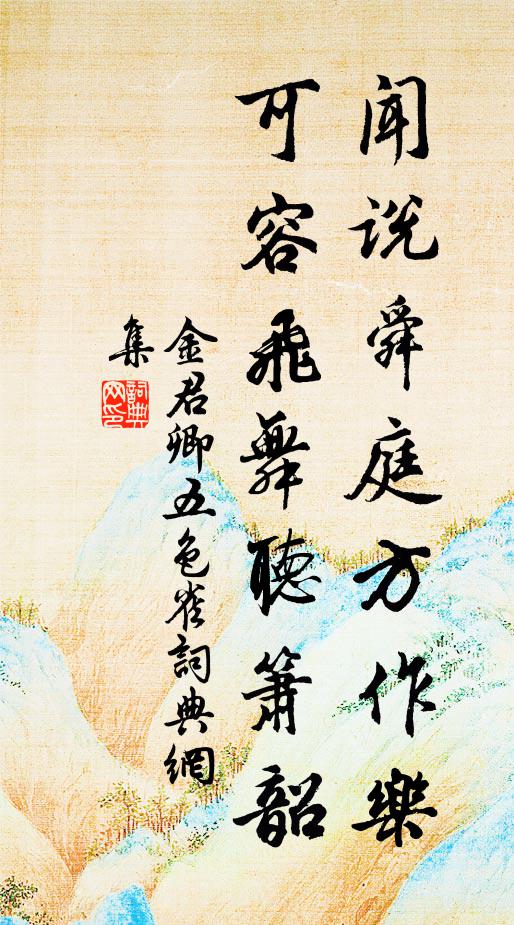 聞説舜庭方作樂
可容飛舞聽簫韶
金君卿五色雀詞典網
集
詞典
网印